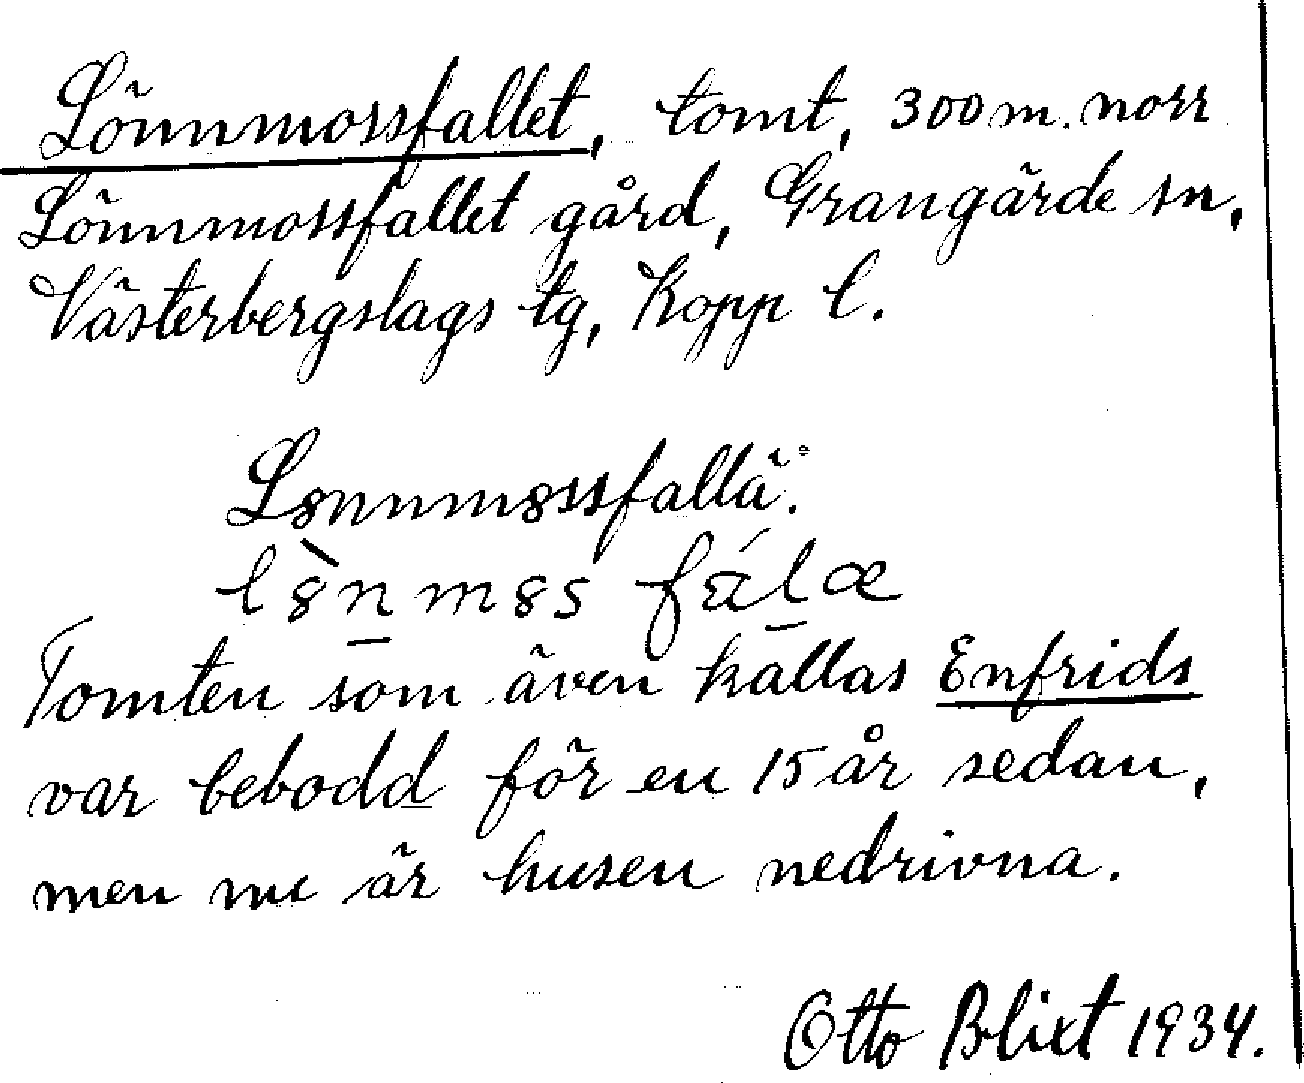 Lönnmossfallet, tomt, 300 m. norr
Lönnmossfallet gård, Grangärde sn,
Västerbergslags tg, Kopp l.
Lønnmøssfallä:
lø̀n̲møs fál̲æ
Tomten som även kallas Enfrids
var bebodd för en 15 år sedan,
men nu är husen nedrivna.
Otto Blixt 1934.